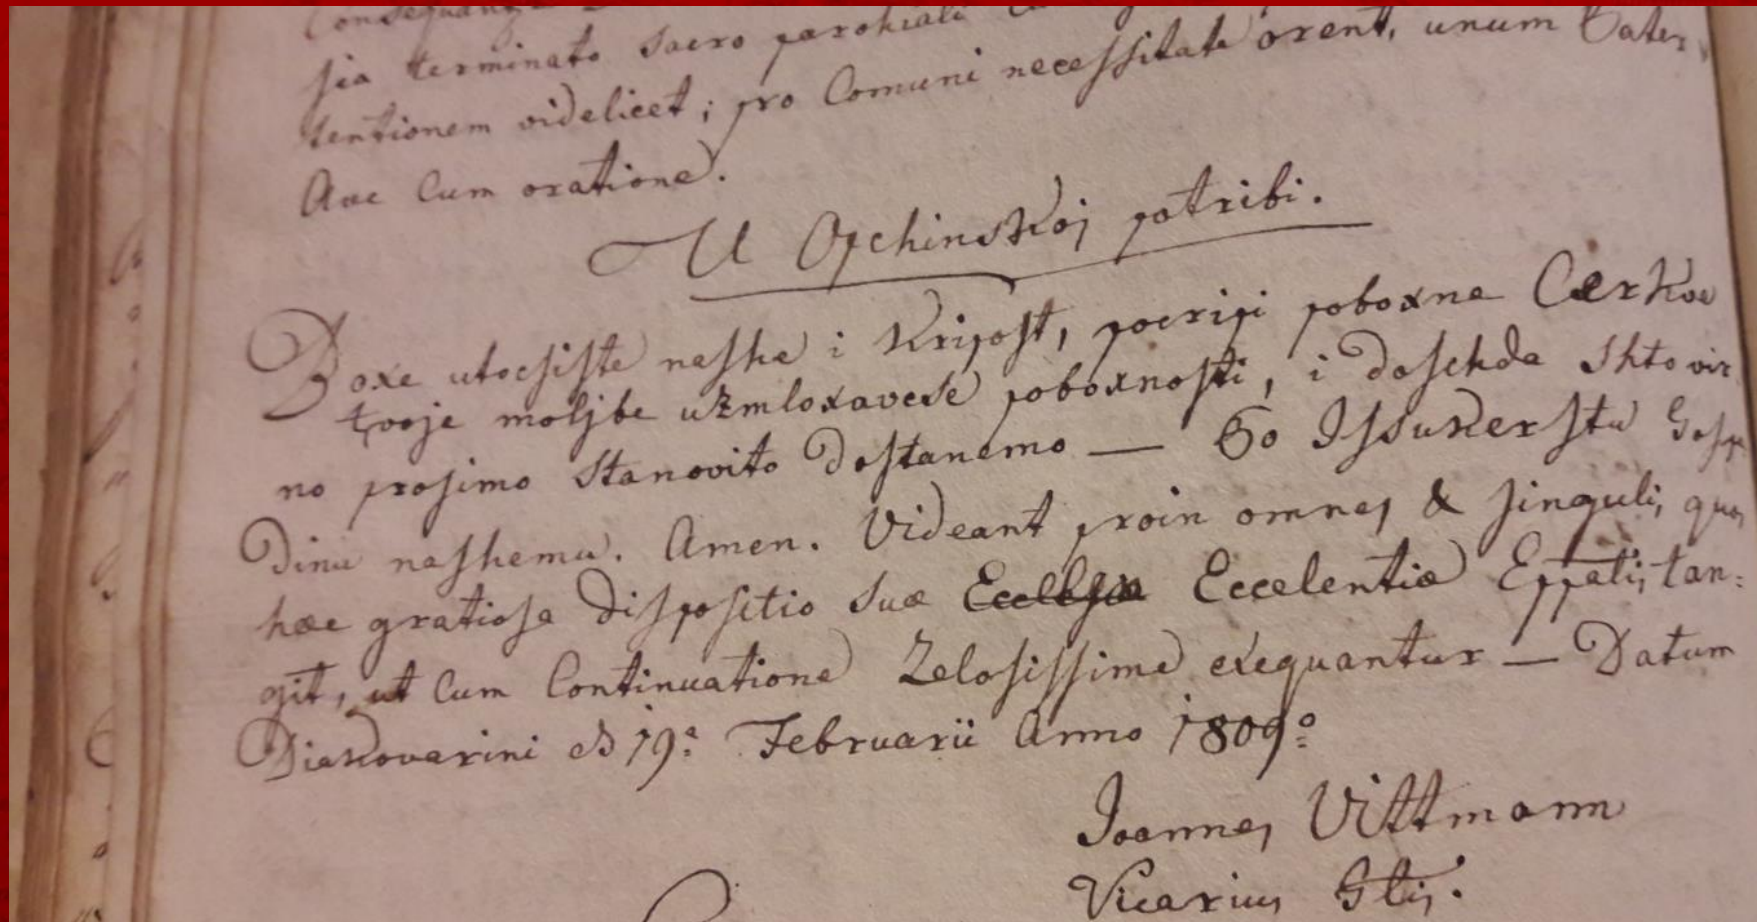 sia terminato sacro parokiali
tentionem videlicet; pro Comuni necessitate orent, unum Pater
Ave Cum oratione.
U Opchinskoj potribi.
Boxe utocsiste nashe i Kripost, pocripi poboxne Cerkve
tvoje moljbe uzmloxavese poboxnosti, i doschda shto vir
no prosimo stanovito dostanemo — Po Issukerstu Gospo
dinu nashemu. Amen. Videant proin omnes & singuli, quos
hæc gratiosa dispositio suæ Eccelentiæ Eppalis tan=
git, ut cum Continuatione Zelosissime exequantur — Datum
Diakovarini 19a Februarii Anno 1809o
Joannes Vittmann
Vicarius Glis.